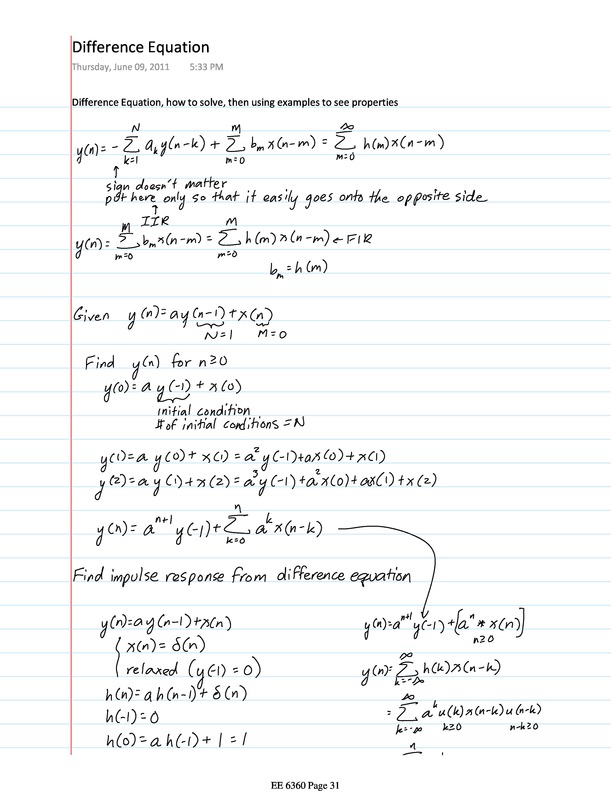 Difference Equation
Thursday, June 09, 2011 5:33 PM
Difference Equation, how to solve, then using examples to see properties
y(n) = - ∑_{k=1}^{N} a_k y(n-k) + ∑_{m=0}^{M} b_m x(n-m) = ∑_{m=0}^{∞} h(m) x(n-m)
↑
sign doesn't matter
put here only so that it easily goes onto the opposite side
↑
IIR
y(n) = ∑_{m=0}^{M} b_m x(n-m) = ∑_{m=0}^{M} h(m) x(n-m) ← FIR
b_m = h(m)
Given y(n) = ay(n-1) + x(n)
N=1 M=0
Find y(n) for n≥0
y(0) = a y(-1) + x(0)
initial condition
# of initial conditions = N
y(1) = a y(0) + x(1) = a² y(-1) + ax(0) + x(1)
y(2) = a y(1) + x(2) = a³ y(-1) + a² x(0) + ax(1) + x(2)
y(n) = a^{n+1} y(-1) + ∑_{k=0}^{n} a^k x(n-k)
Find impulse response from difference equation
y(n) = ay(n-1) + x(n)
{ x(n) = δ(n)
relaxed (y(-1) = 0)
h(n) = a h(n-1) + δ(n)
h(-1) = 0
h(0) = a h(-1) + 1 = 1
y(n) = a^{n+1} y(-1) + [a^n * x(n)]
n≥0
y(n) = ∑_{k=-∞}^{∞} h(k) x(n-k)
= ∑_{k=-∞}^{∞} a^k u(k) x(n-k) u(n-k)
k≥0 n-k≥0
n
EE 6360 Page 31